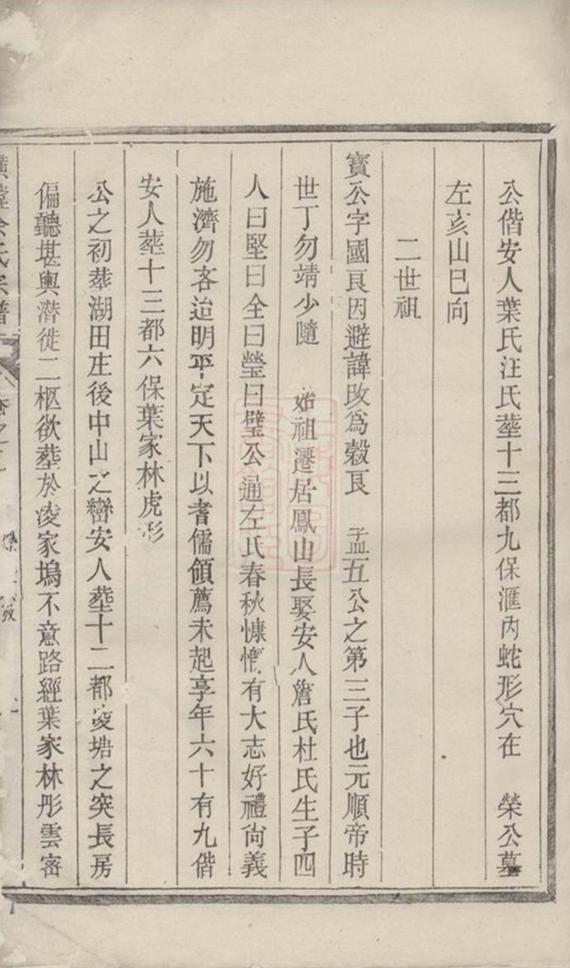 公偕安人葉氏汪氏塟十三都九保滙内蛇形穴在　榮公墓
左亥山巳向
二世祖
寳公字國良因避諱改爲穀良　孟五公之第三子也元順帝時
世丁勿靖少隨　始祖遷居鳳山長娶安人詹氏杜氏生子四
人曰堅曰全曰瑩曰璧公通左氏春秋慷慨有大志好禮尙義
施濟勿吝迨明平定天下以耆儒領薦未起享年六十有九偕
安人塟十三都六保葉家林虎形
公之初塟湖田庄後中山之巒安人塟十二都凌塘之突長房
偏聽堪輿潛徙二柩欲塟於凌家塢不意路經葉家林彤雲密
氏宗譜